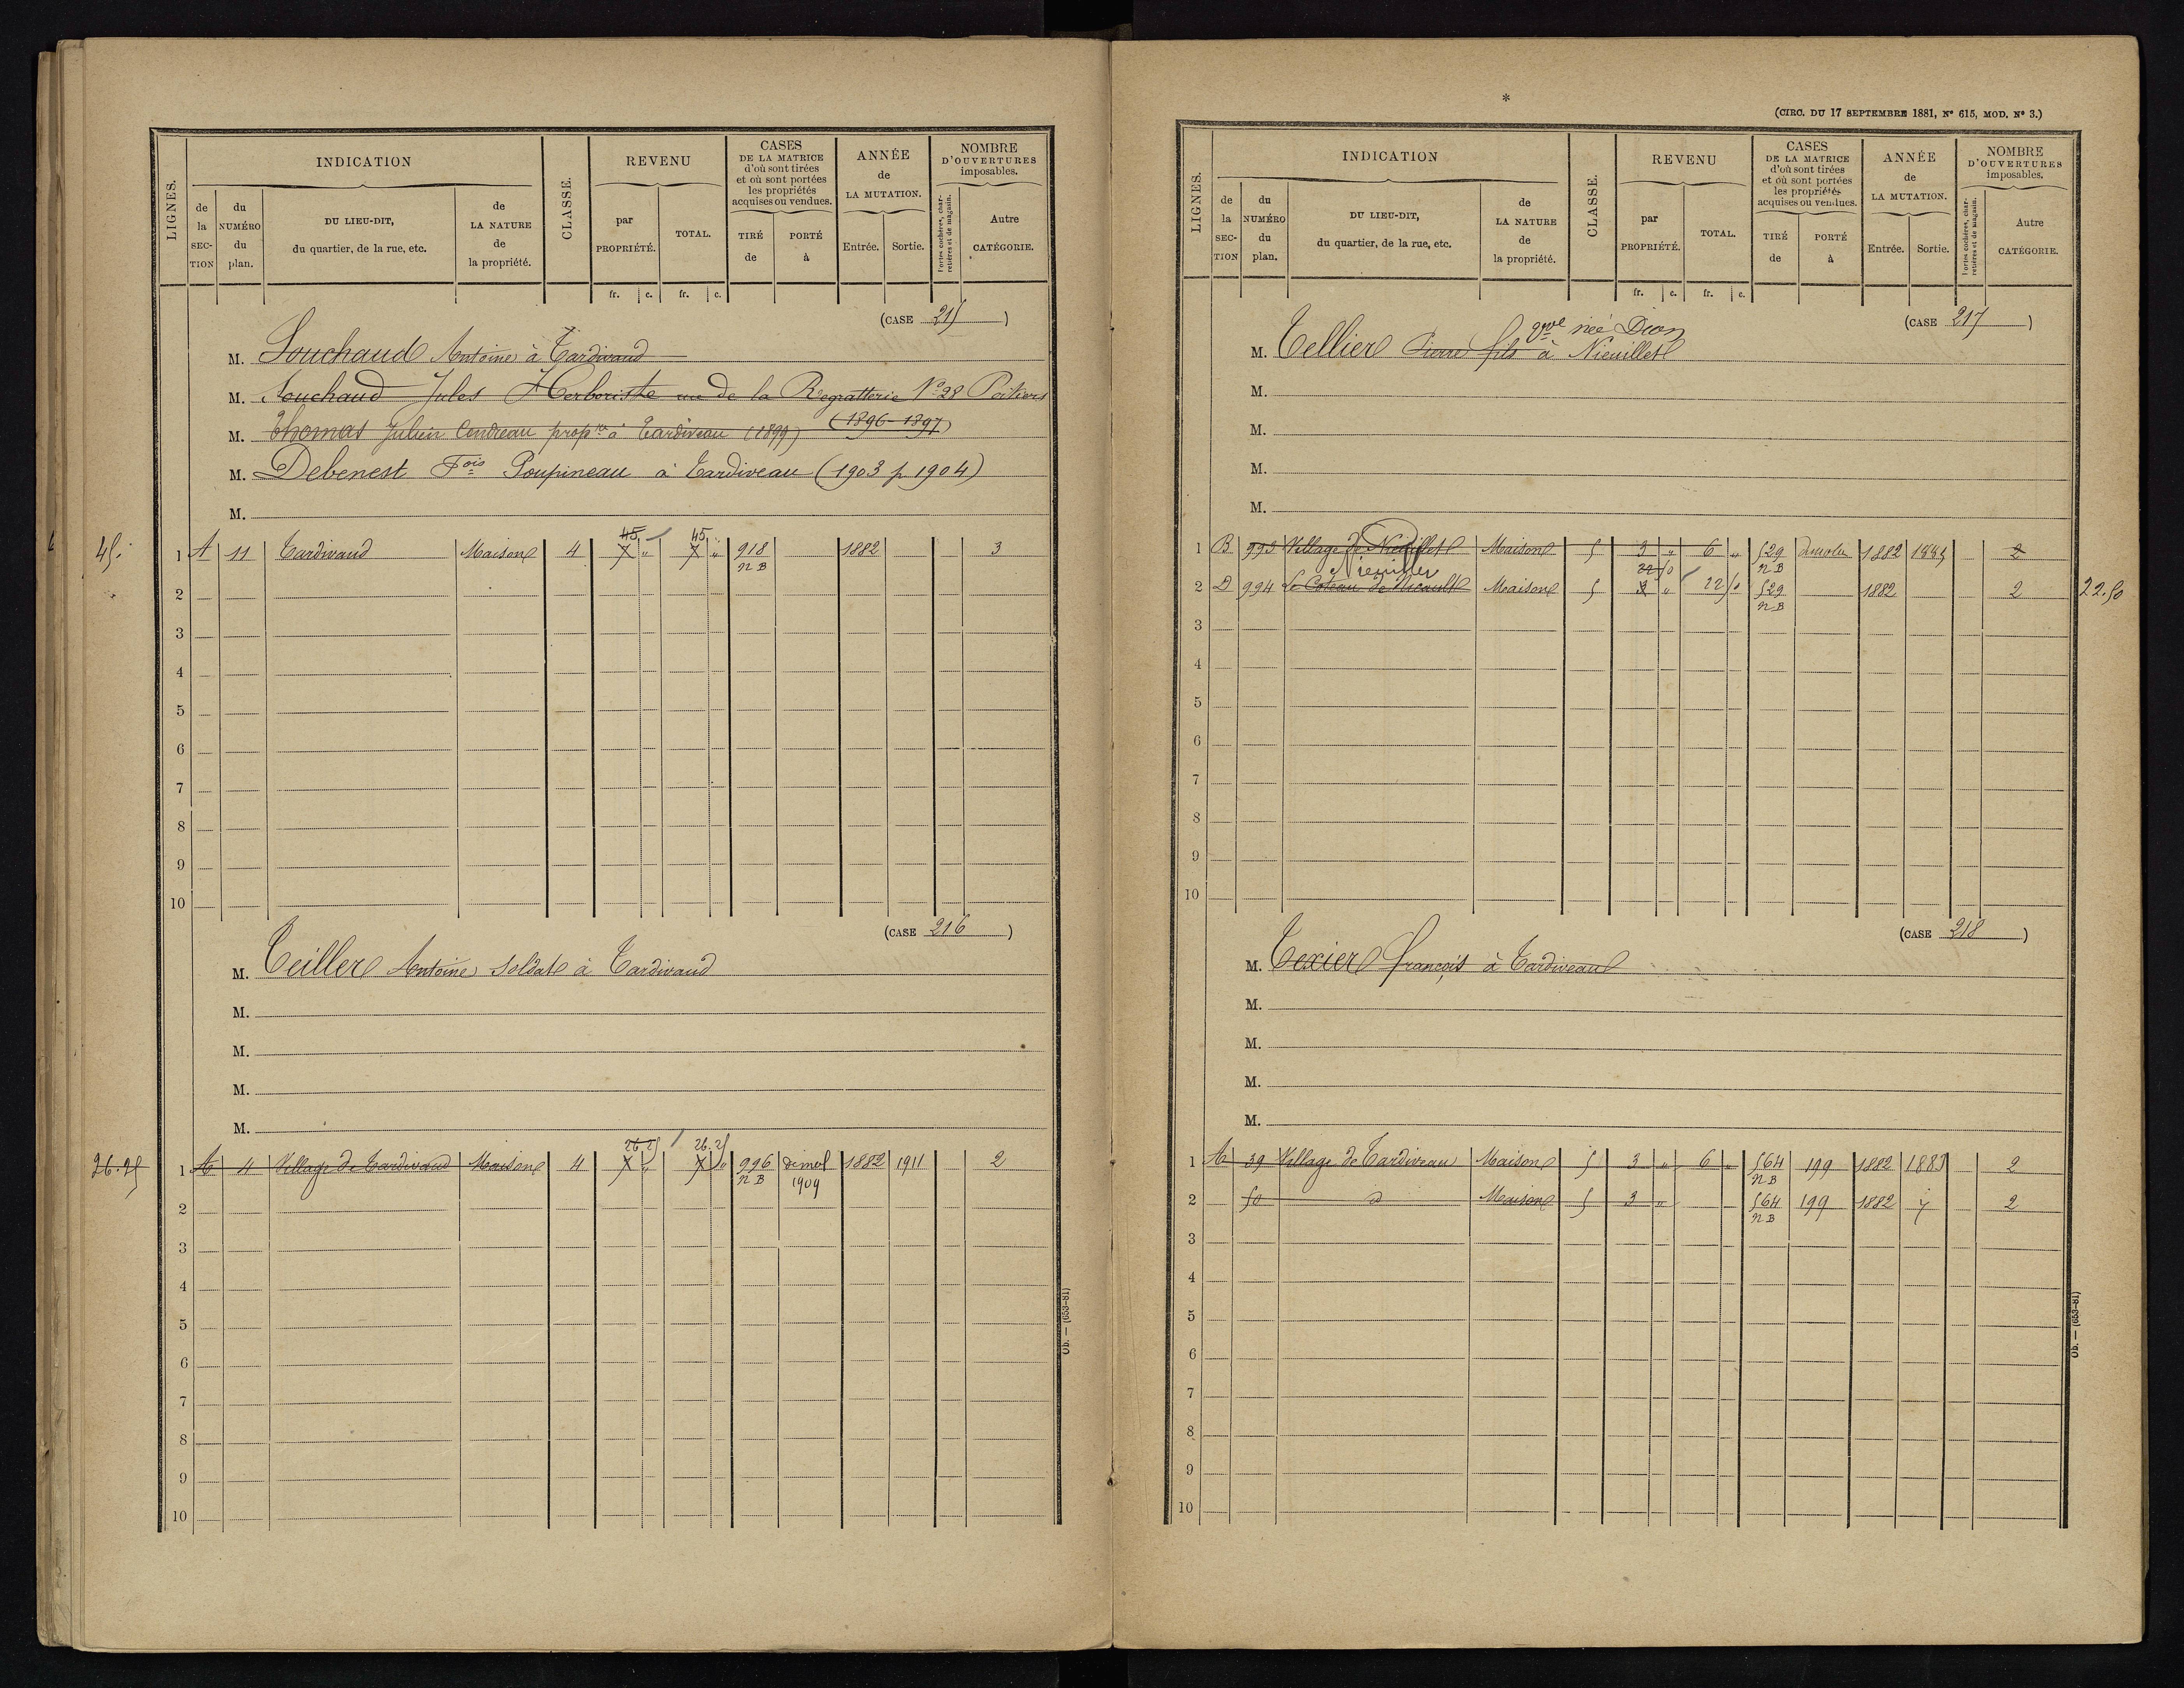 LIGNES.
INDICATION
de la SECTION
du NUMÉRO du plan.
DU LIEU-DIT, du quartier, de la rue, etc.
de LA NATURE de la propriété.
CLASSE.
REVENU
par PROPRIÉTÉ.
TOTAL.
fr. c. fr. c.
CASES DE LA MATRICE d'où sont tirées et où sont portées les propriétés acquises ou vendues.
TIRÉ de
PORTÉ à
ANNÉE de LA MUTATION.
Entrée. Sortie.
NOMBRE D'OUVERTURES imposables.
Portes cochères, charretières et de magasin.
Autre CATÉGORIE.
(CASE 215)
M. Souchaud Antoine à Tardivaud
M. Souchaud Jules Herboriste rue de la Regratterie N° 28 Poitiers
(1896-1897)
M. Thomas Julien Cendreau prop.re à Tardiveau (1899)
M. Debenest Fois Poupineau à Tardiveau (1903 p 1904)
M.
45 45
45. 1 A 11 Tardivaud Maison 4 7 „ 7 „ 918 1882 3
NB
2
3
4
5
6
7
8
9
10
(CASE 216)
M. Teiller Antoine soldat à Tardivaud
M.
M.
M.
M.
26.25 26.25
26.25 1 A 4 Village de Tardivaud Maison 4 7 „ 7 „ 996 démol 1882 1911 2
NB 1909
2
3
4
5
6
7
8
9
10
Ob. — (653-81)
*
(CIRC. DU 17 SEPTEMBRE 1881, N° 615, MOD. N° 3.)
LIGNES.
INDICATION
de la SECTION
du NUMÉRO du plan.
DU LIEU-DIT, du quartier, de la rue, etc.
de LA NATURE de la propriété.
CLASSE.
REVENU
par PROPRIÉTÉ.
TOTAL.
fr. c. fr. c.
CASES DE LA MATRICE d'où sont tirées et où sont portées les propriétés acquises ou vendues.
TIRÉ de
PORTÉ à
ANNÉE de LA MUTATION.
Entrée. Sortie.
NOMBRE D'OUVERTURES imposables.
Portes cochères, charretières et de magasin.
Autre CATÉGORIE.
(CASE 217)
née Dion
M. Tellier Pierre fils à Nieuillet
M.
M.
M.
M.
1 B 993 Village de Nieuillet Maison 5 3 „ 6 „ 529 démolie 1882 1885 2
22 50 NB
2 D 994 Le Coteau de Maison 5 3 „ 22 50 529 1882 2 22.50
NB
3
4
5
6
7
8
9
10
(CASE 218)
M. Texier François à Tardiveau
M.
M.
M.
M.
1 A 39 Village de Tardiveau Maison 5 3 „ 6 „ 564 199 1882 1883 2
NB
2 50 id Maison 5 3 „ 564 199 1882 2
NB
3
4
5
6
7
8
9
10
Ob. — (653-81)